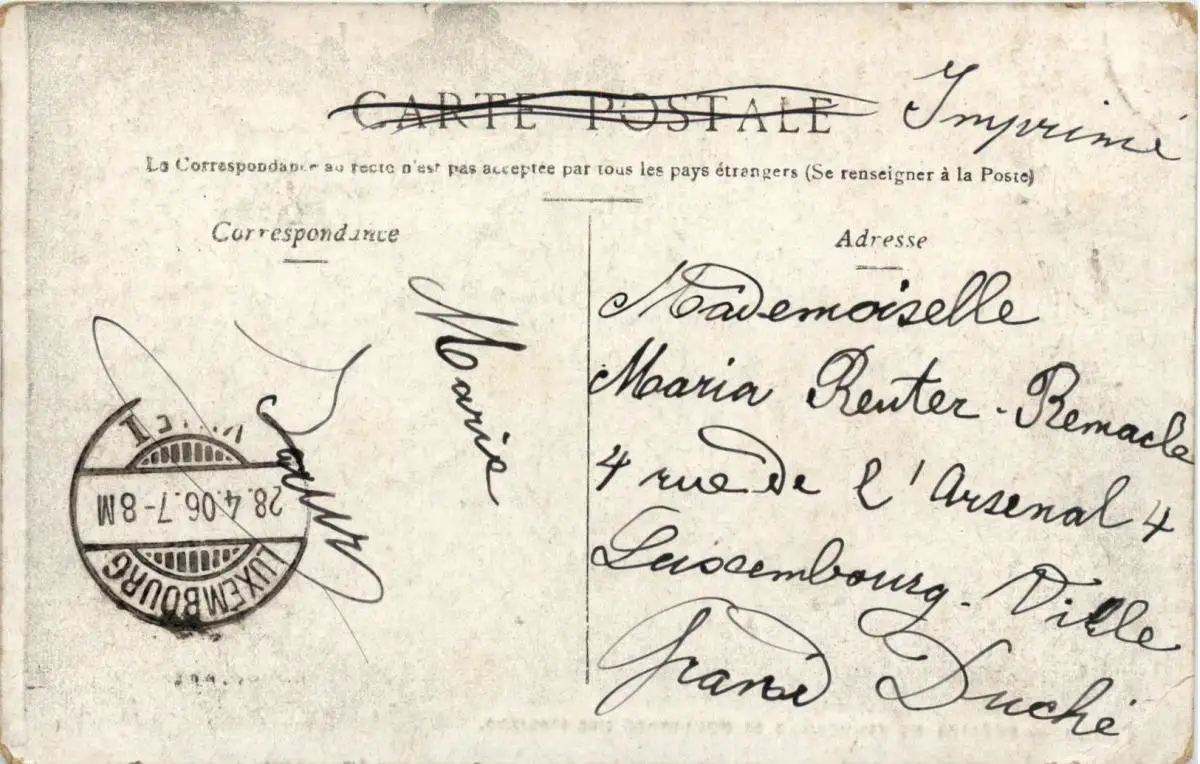 CARTE POSTALE
Imprimé
La Correspondance au recto n'est pas acceptée par tous les pays étrangers (Se renseigner à la Poste)
Correspondance
Marie
LUXEMBOURG
28.4.06.7-8M
Adresse
Mademoiselle
Maria Reuter-Remacle
4 rue de l'Arsenal 4
Luxembourg-Ville
Grand Duché